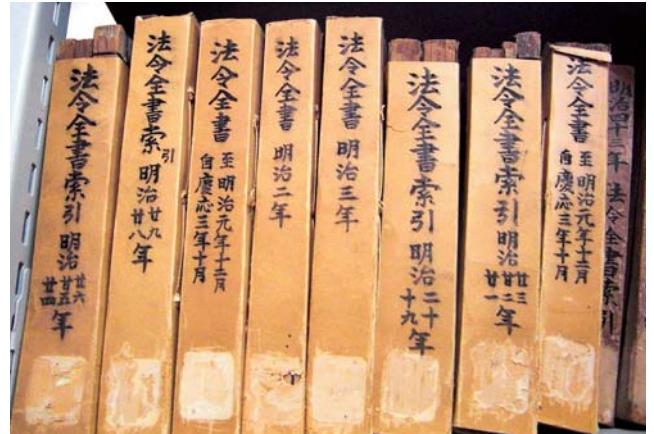 法令全書索引 明治廿六廿五廿四年
法令全書索引 明治廿九廿八年
法令全書 至明治元年十二月
自慶応三年十月
法令全書 明治二年
法令全書 明治三年
法令全書索引 明治二十十九年
法令全書索引 明治廿三廿二廿一年
法令全書 至明治元年十二月
自慶応三年十月
明治四十三年 法令全書索引